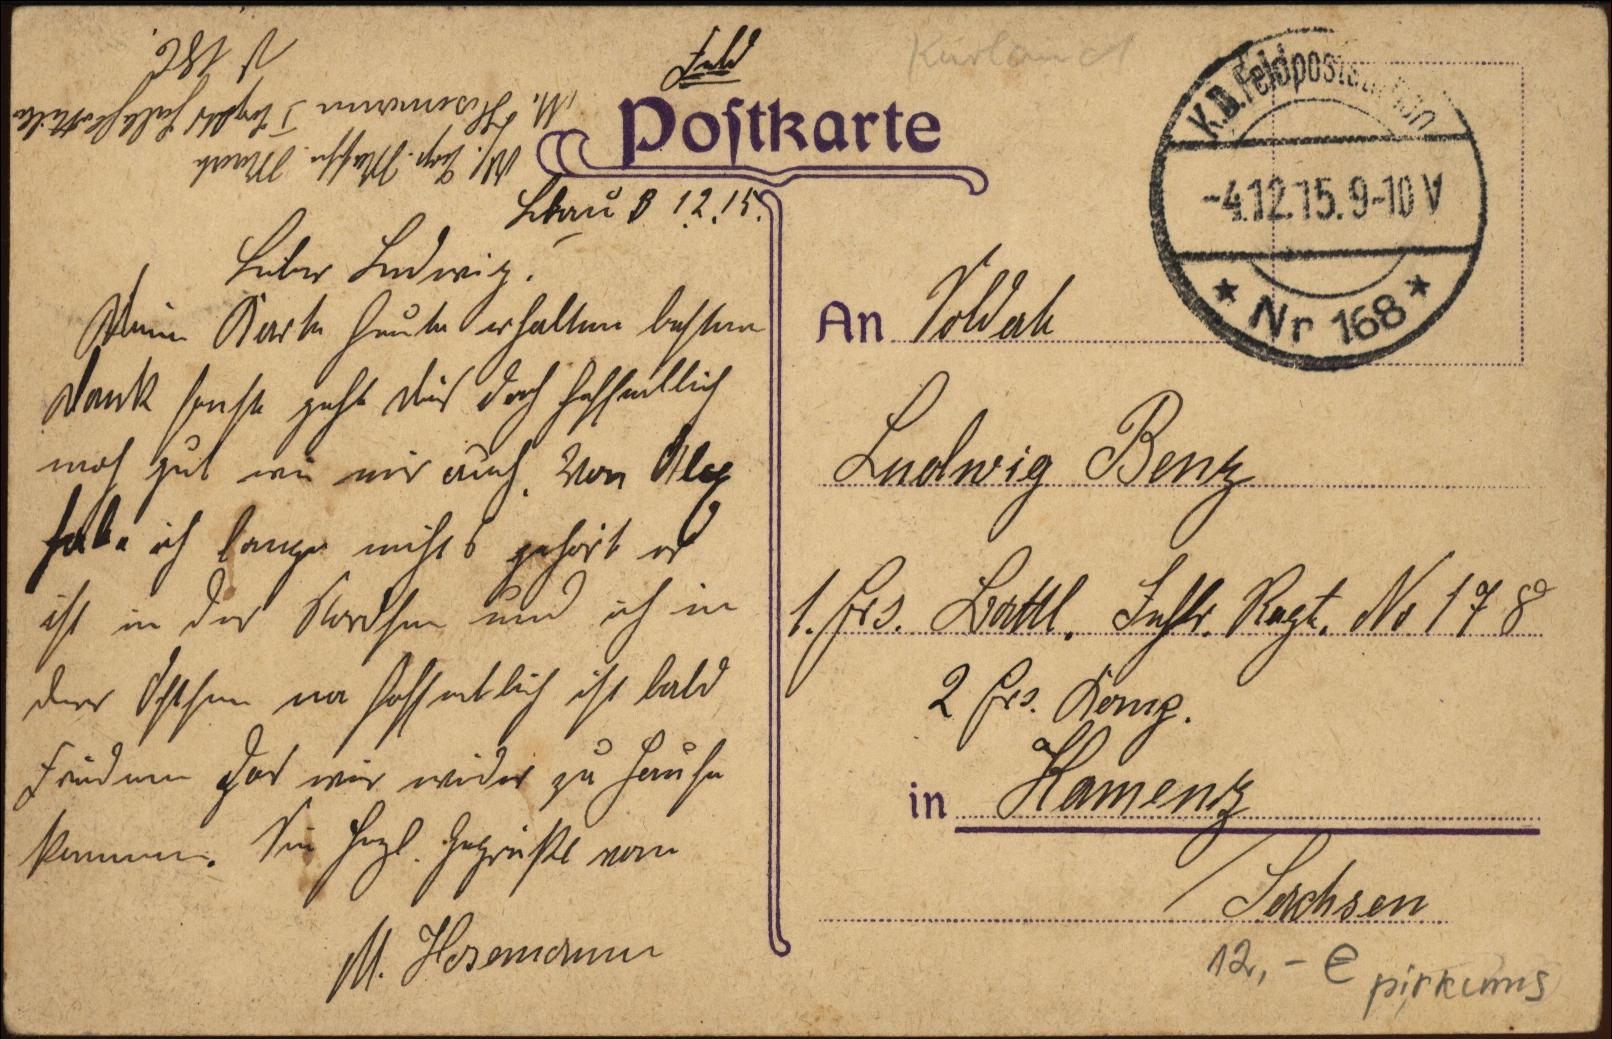 Feld
Postkarte
Kurland
K.D. Feldpoststation
-4.12.15.9-10 V
* Nr 168 *
V 186.
M. Hosemann
Libau 3 12.15.
Lieber Ludwig.
Deine Karte heute erhalten besten
Dank sonst geht dirs doch hoffentlich
noch gut wie mir auch. Von Alex
habe ich lange nichts gehört er
ist in der Nordsee und ich in
der Ostsee na hoffentlich ist bald
Frieden das wir wider zu Hause
kommen. Sei herzl. gegrüßt vom
M. Hosemann
An Soldat
Ludwig Benz
1. Ers. Battl. Inftr. Regt. No 178
2 Ers. Komp.
in Kamenz
/ Sachsen
12,- € pirkums